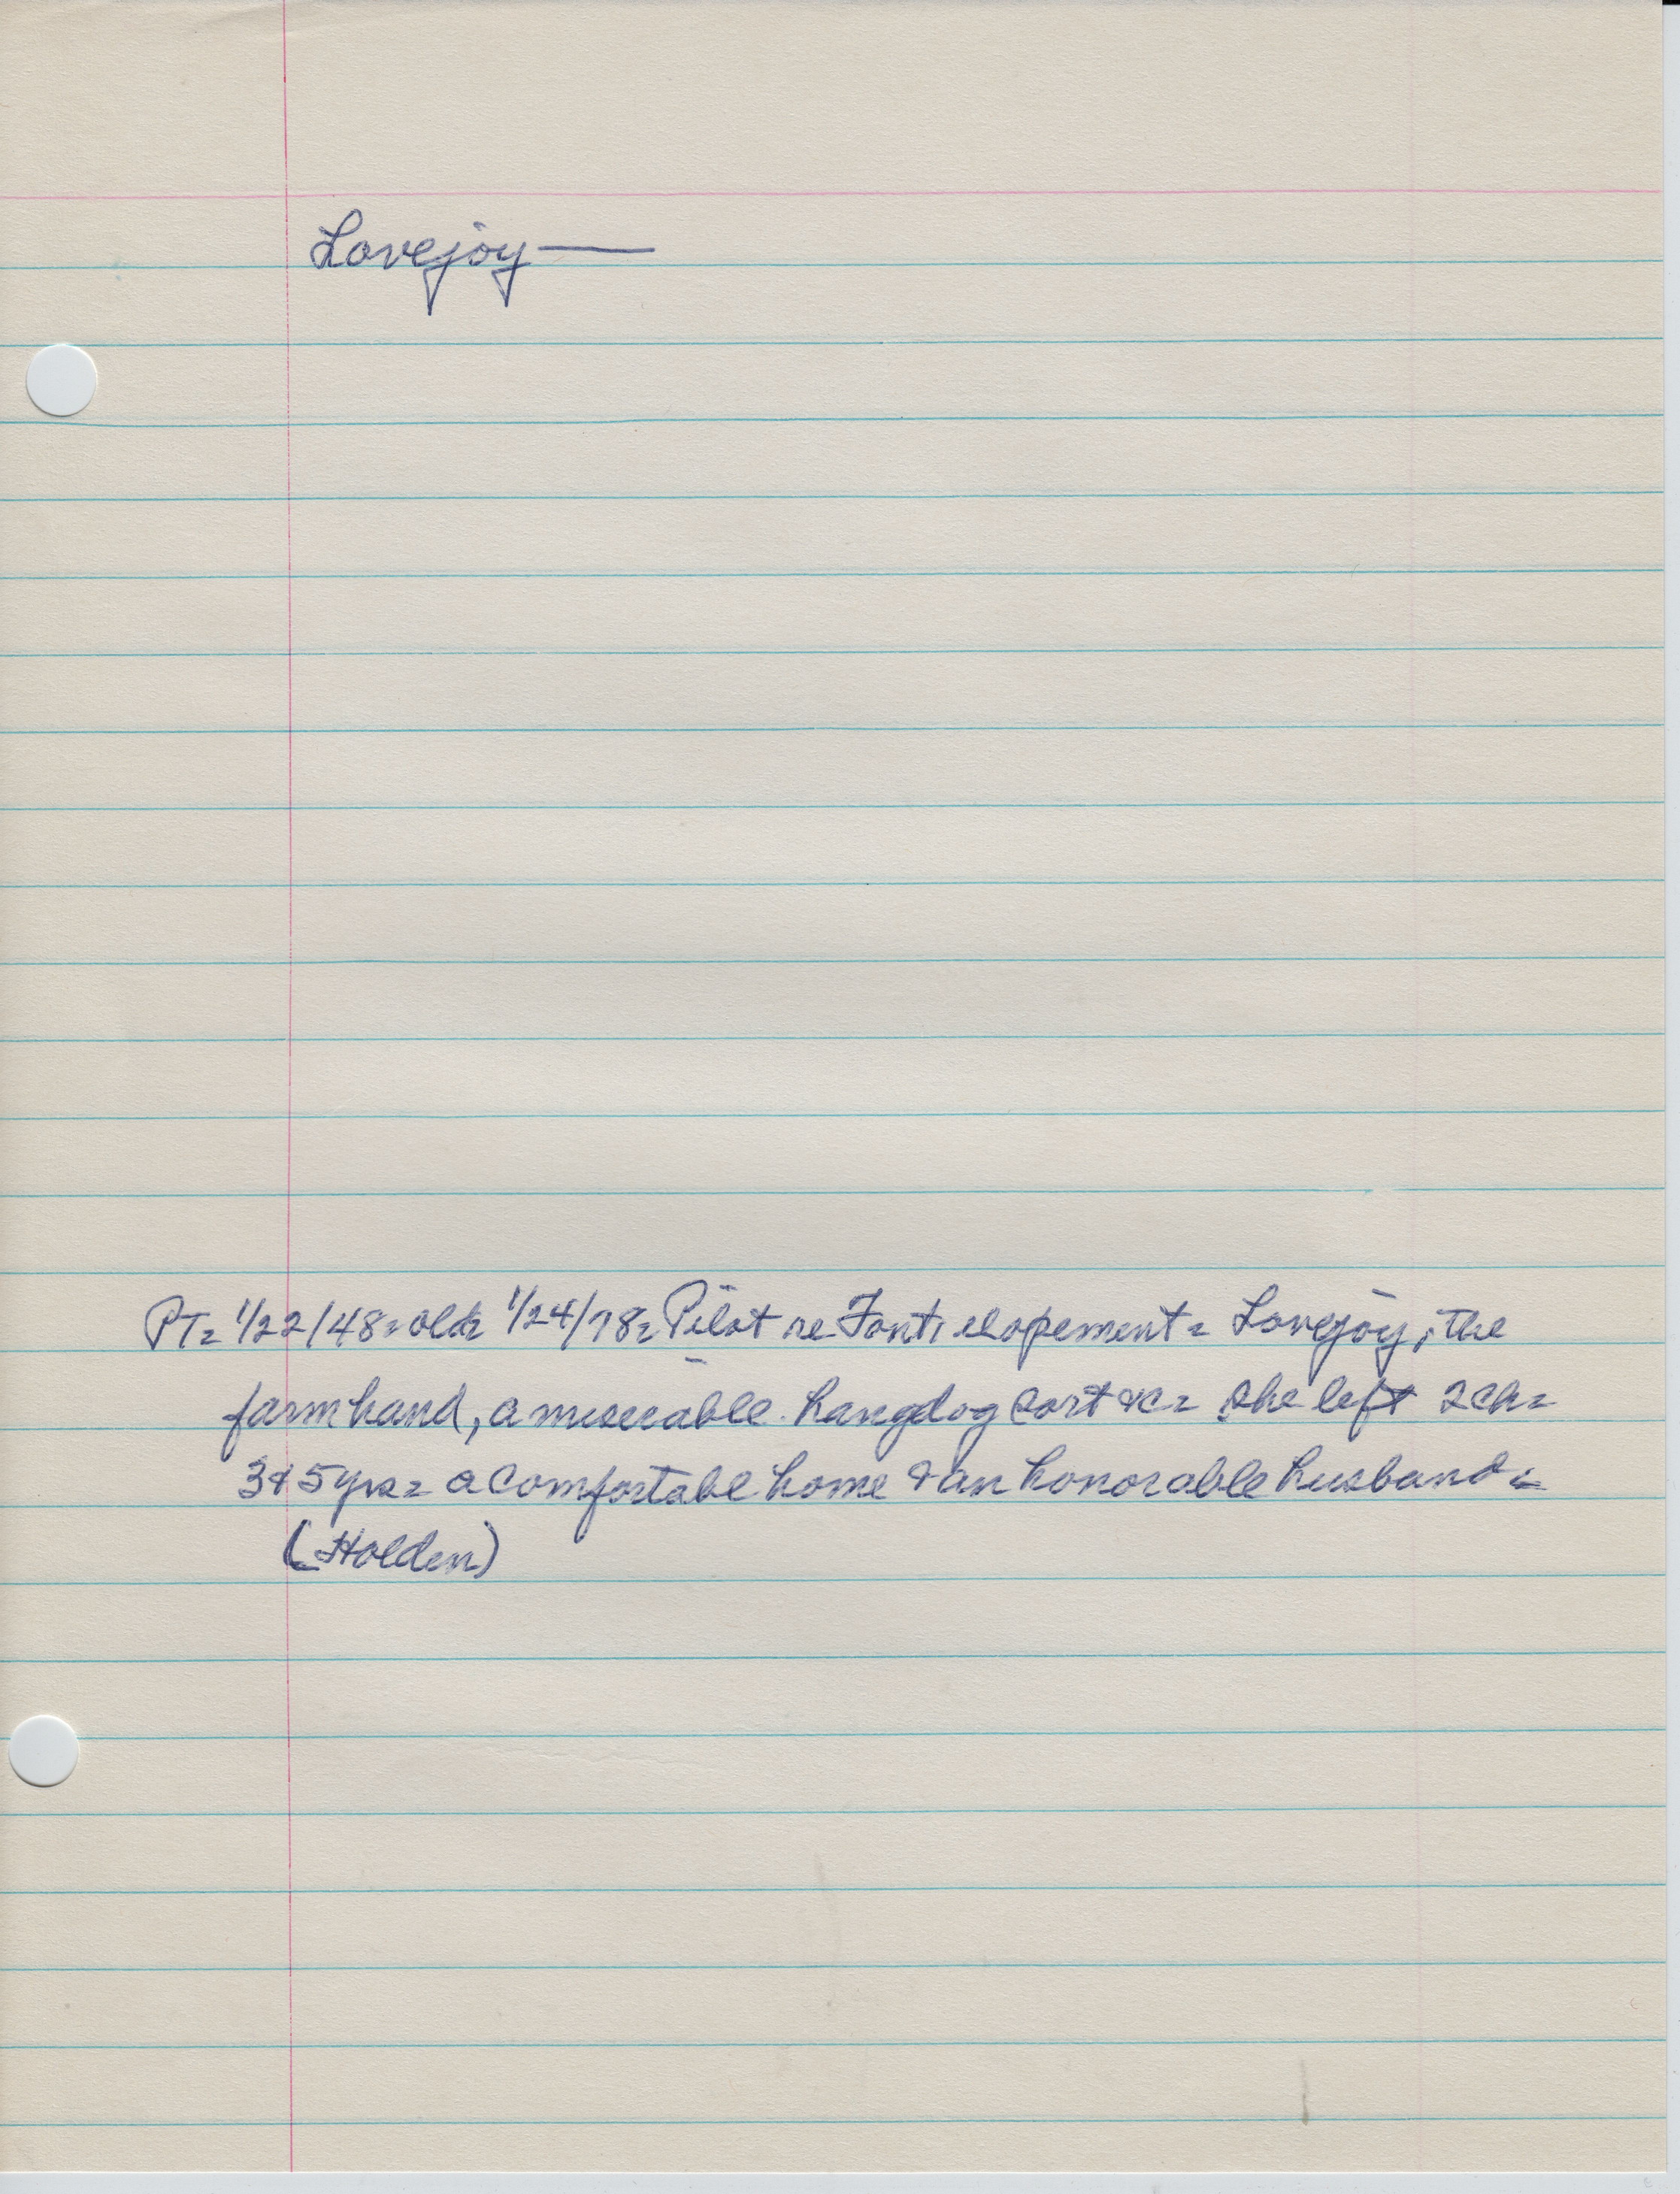 Lovejoy —
PT= 1/22/48= old= 1/24/78= Pilot re Fonti elopement= Lovejoy, the
farm hand, a miserable hangdog sort &c= she left 2 ch=
3 & 5 yrs= a comfortable home & an honorable husband=
(Holden)